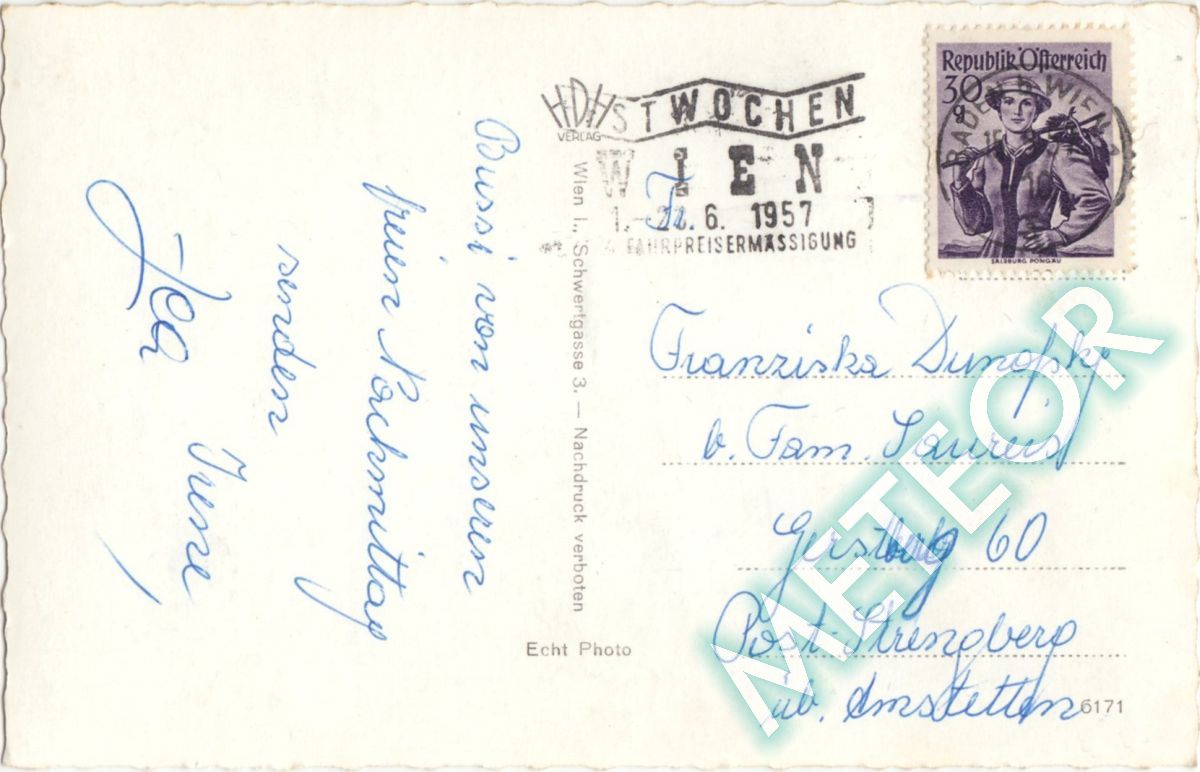 Bussi von unseren
freien Nachmittag
senden
Irene
HDH
VERLAG
Wien I., Schwertgasse 3. — Nachdruck verboten
STWOCHEN
WIEN
1.- 6. 1957
FAHRPREISERMÄSSIGUNG
Republik Österreich
30
g
SALZBURG PONGAU
BADEN B. WIEN
Fr.
Franziska
b. Fam.
60
Post Strengberg
üb. Amstetten
Echt Photo
6171
METEOR